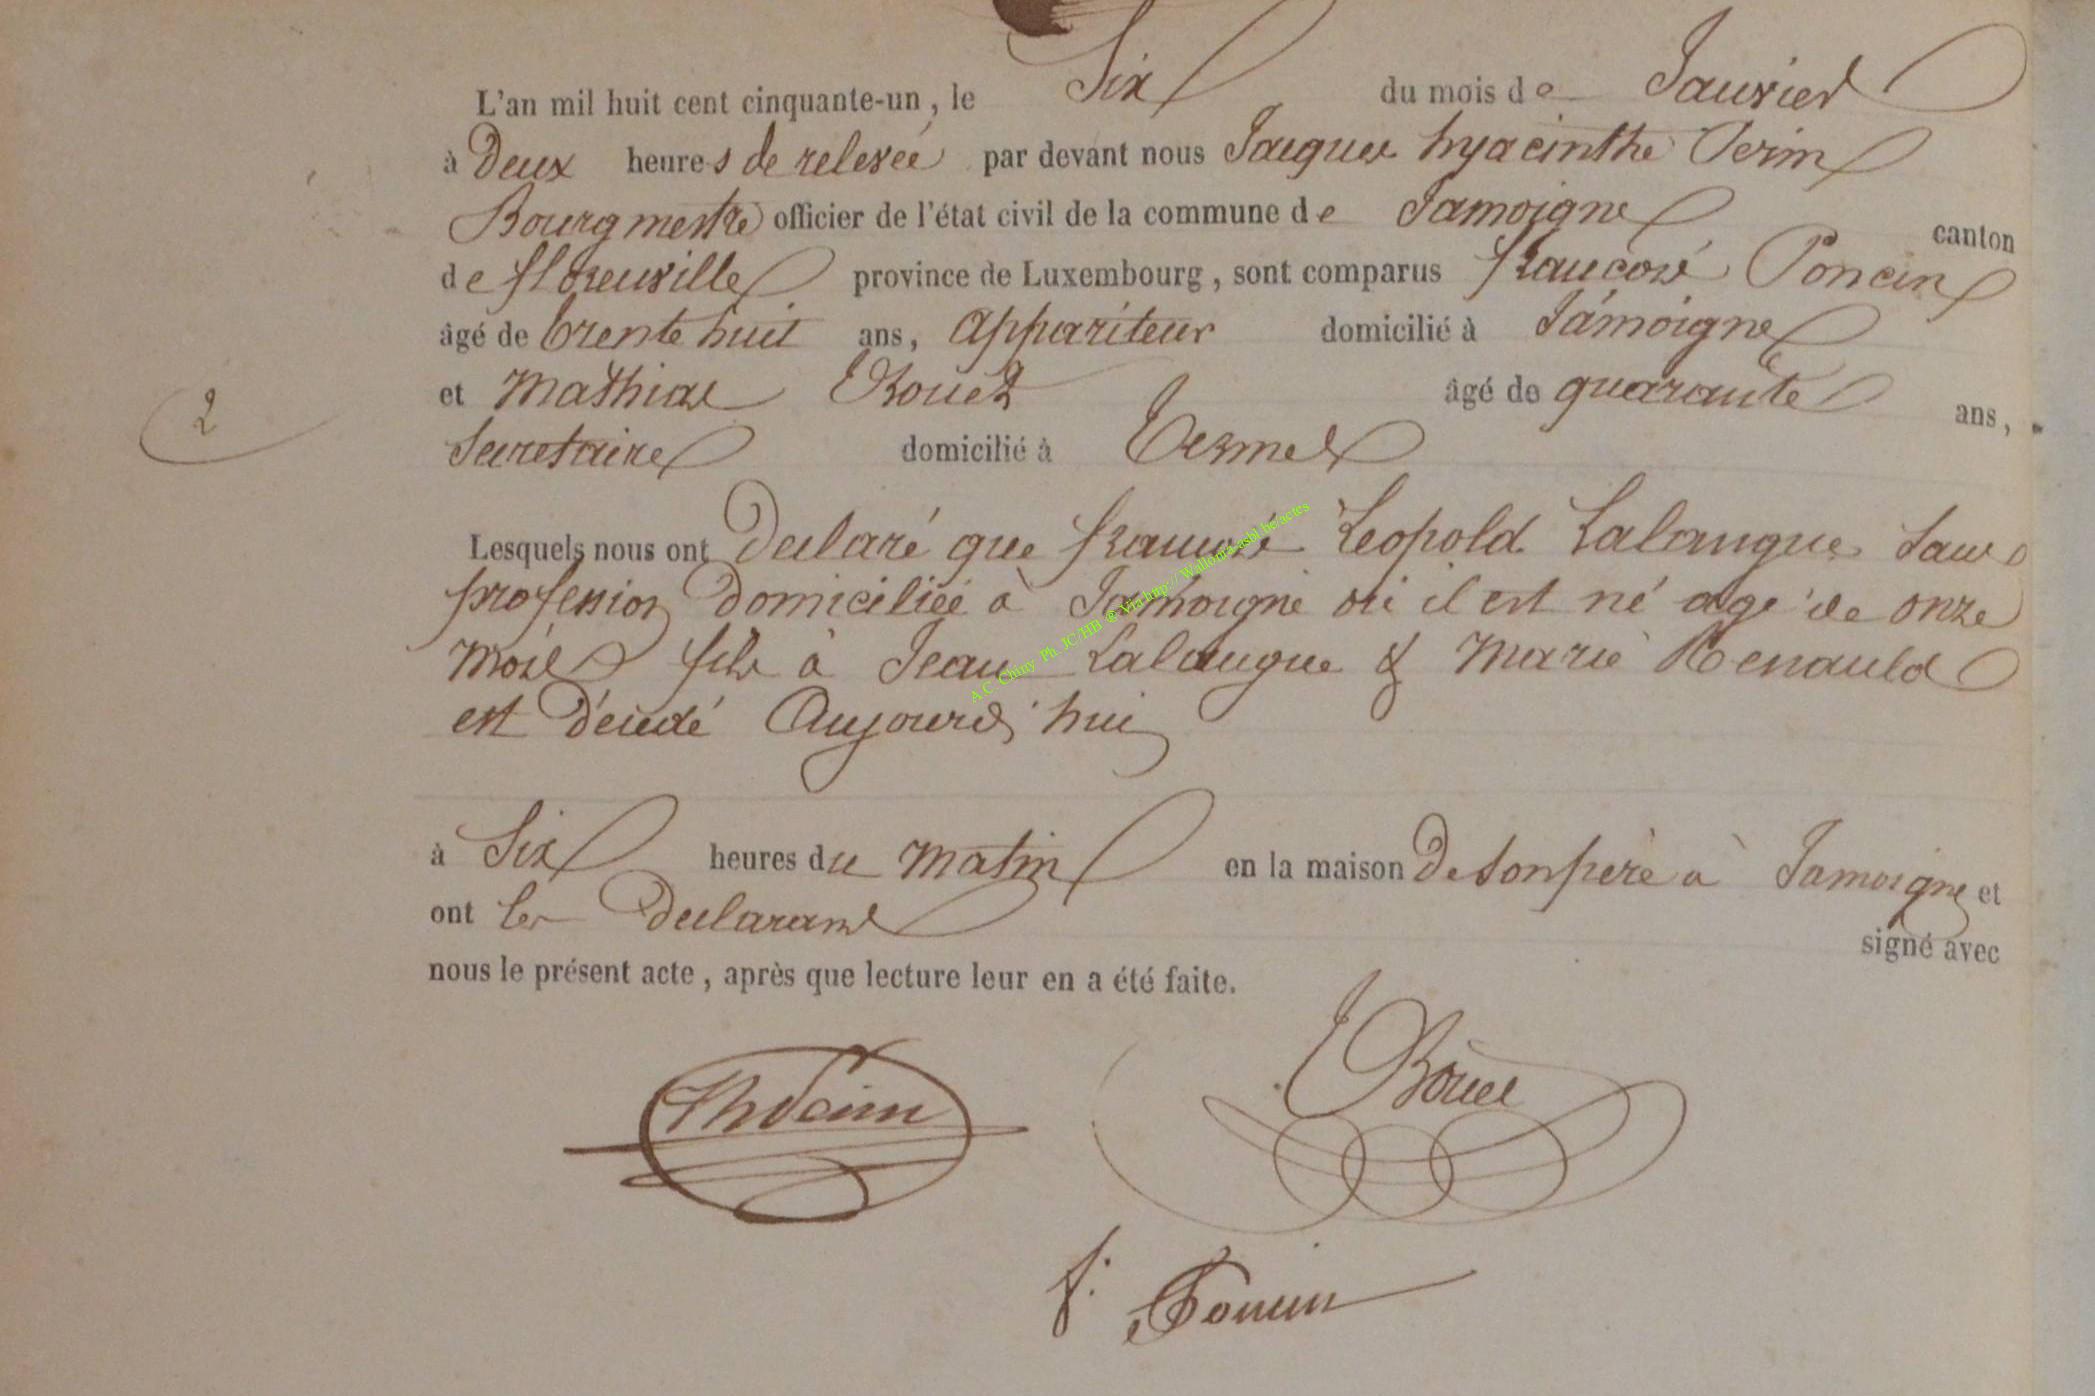 L'an mil huit cent cinquante-un, le Six du mois de Janvier
à Deux heures de relevée par devant nous Jacques hyacinthe Perin
Bourgmestre officier de l'état civil de la commune de Jamoigne canton
de florenville province de Luxembourg, sont comparus françois Poncin
âgé de trente huit ans, appariteur domicilié à Jamoigne
et Mathias Rouer âgé de quarante ans,
2
Secretaire domicilié à Termes
Lesquels nous ont Declaré que françois Leopold Lalangue sans
profession Domiciliée à Jamoigne où il est né agé de onze
mois fils à Jean Lalangue & Marie Renauld
est Décedé Aujourd'hui
A.C Chiny Ph JC/HB @ Via http:// Wallonia-asbl.be/actes
à Six heures du matin en la maison de son père à Jamoigne et
ont les Declarans signé avec
nous le présent acte, après que lecture leur en a été faite.
Rouer
f. Poncin